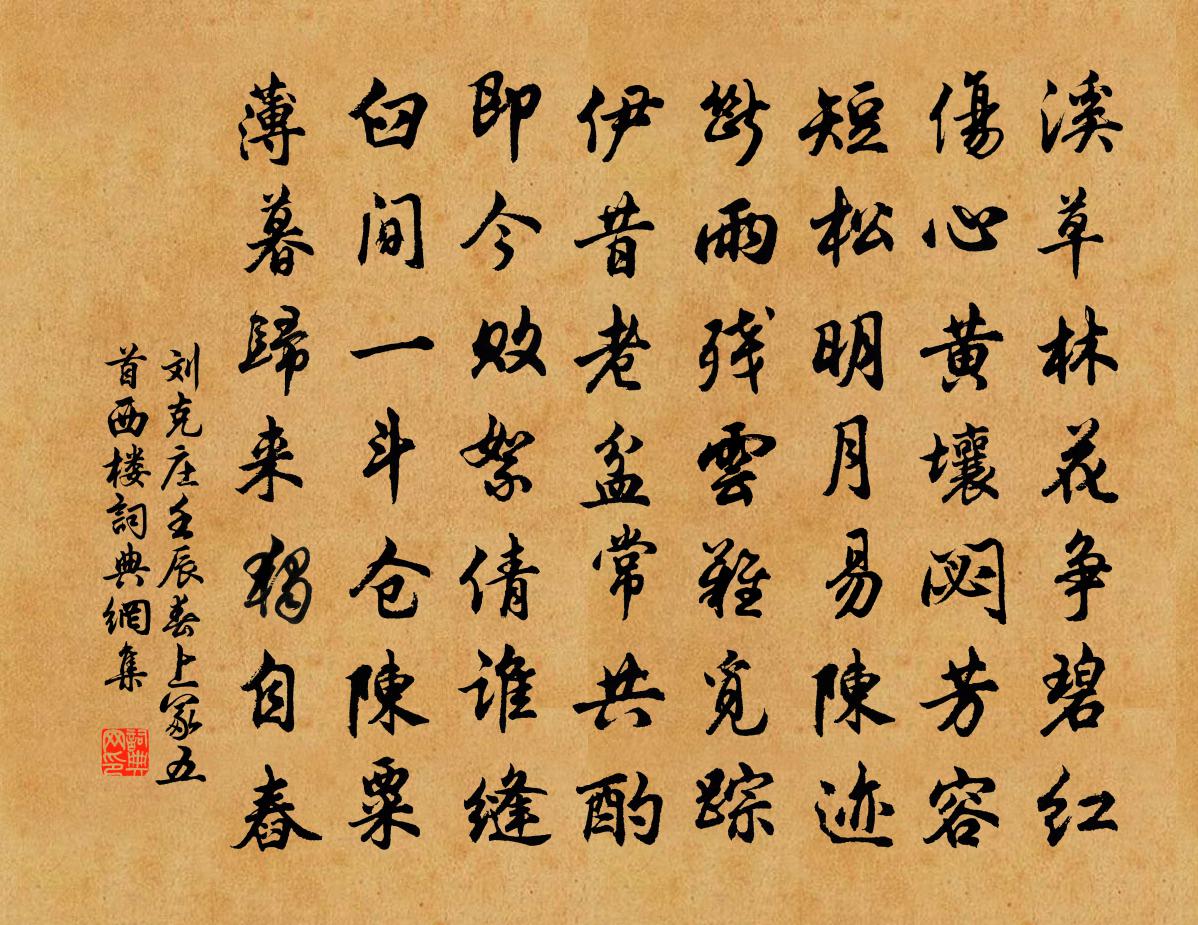 溪草林花争碧红
傷心黄壤閟芳容
短松明月易陳迹
断雨残雲難覓踪
伊昔老盆常共酌
即今敗絮倩誰縫
臼间一斗仓陳粟
薄暮歸来独自舂
刘克庄壬辰春上冢五
首西楼詞典網集
詞典网印